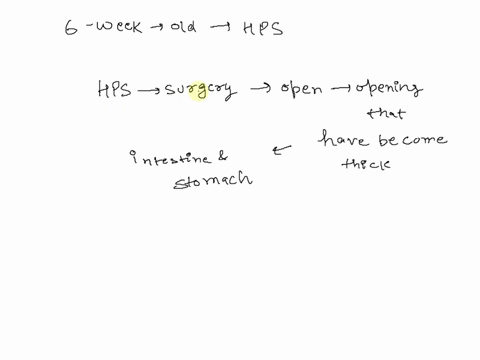 6-week → old → HPS
HPS → surgery → open → opening
that
have become
thick
←
intestine &
stomach